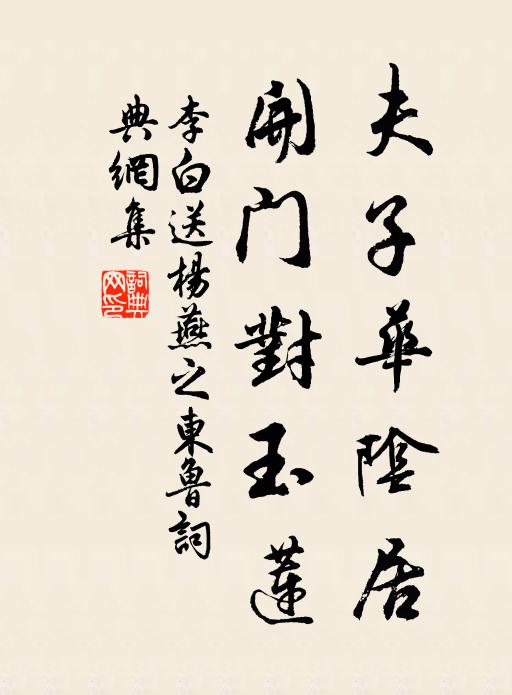 夫子華陰居
開門對玉蓮
李白送楊燕之東魯詞
典網集
詞典
网印